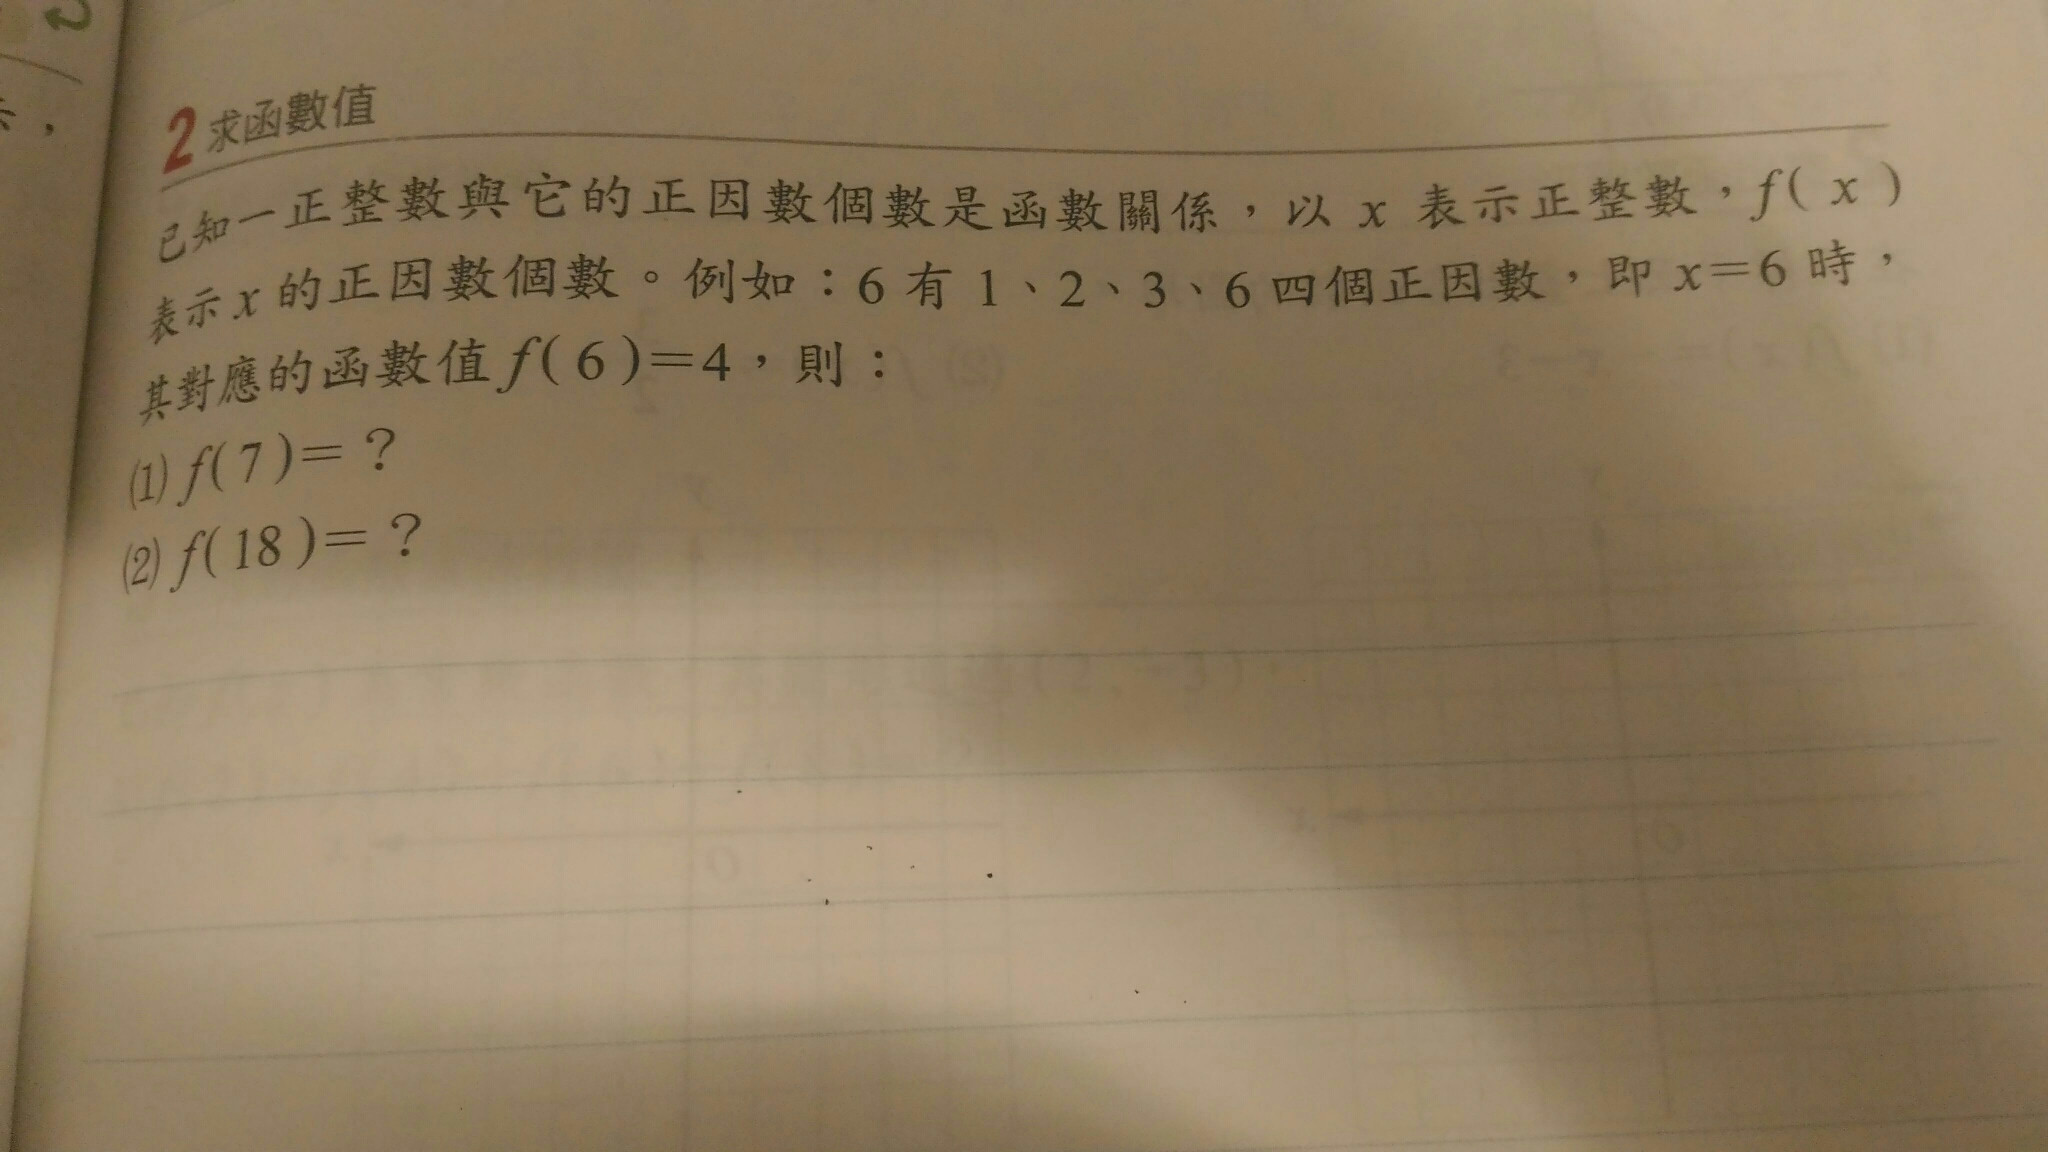 2 求函數值
已知一正整數與它的正因數個數是函數關係，以 x 表示正整數，f( x )
表示 x 的正因數個數。例如：6 有 1、2、3、6 四個正因數，即 x＝6 時，
其對應的函數值 f( 6 )＝4，則：
⑴ f( 7 )＝？
⑵ f( 18 )＝？